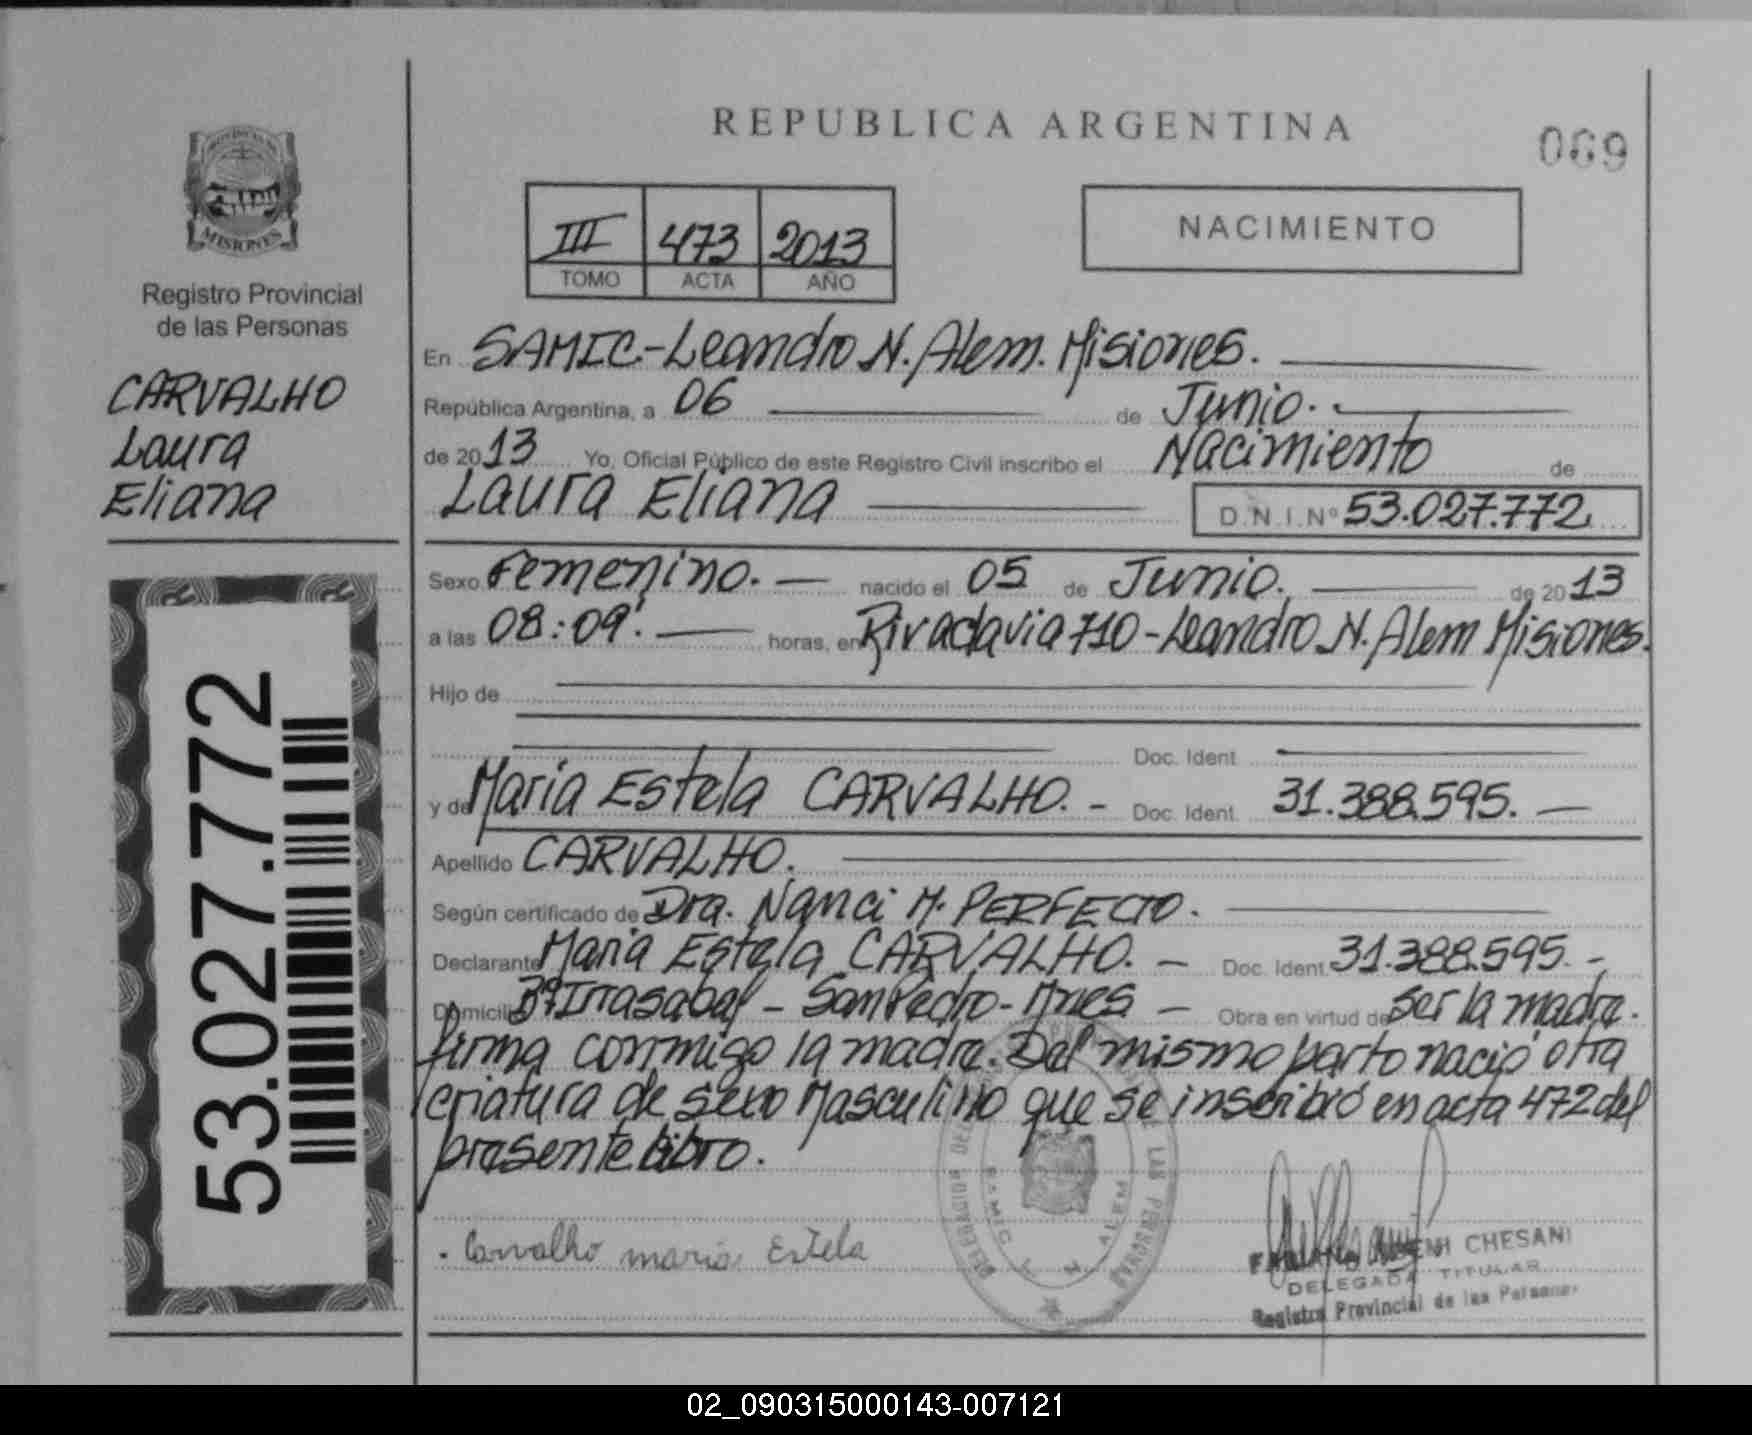 REPUBLICA ARGENTINA
069
MISIONES
Registro Provincial
de las Personas
CARVALHO
Laura
Eliana
53.027.772
III 473 2013
TOMO ACTA AÑO
NACIMIENTO
En SAMIC-Leandro N. Alem. Misiones.
República Argentina, a 06 de Junio.
de 2013 Yo, Oficial Público de este Registro Civil inscribo el Nacimiento de
Laura Eliana D.N.I. Nº 53.027.772
Sexo Femenino. nacido el 05 de Junio. de 2013
a las 08:09. horas, en Rivadavia 710-Leandro N. Alem Misiones.
Hijo de
Doc. Ident.
y de Maria Estela CARVALHO. Doc. Ident. 31.388.595.
Apellido CARVALHO.
Según certificado de Dra. Nanci M. PERFECTO.
Declarante Maria Estela CARVALHO. Doc. Ident. 31.388.595.
Domicilio Bº Irrasabal - San Pedro - Mnes - Obra en virtud de ser la madre.
firma conmigo la madre. Del mismo parto nació otra
criatura de sexo Masculino que se inscribió en acta 472 del
presente libro.
. Carvalho maria Estela
SAMIC L. N. ALEM
CHESANI
DELEGADA TITULAR
Registro Provincial de las Personas
02_090315000143-007121